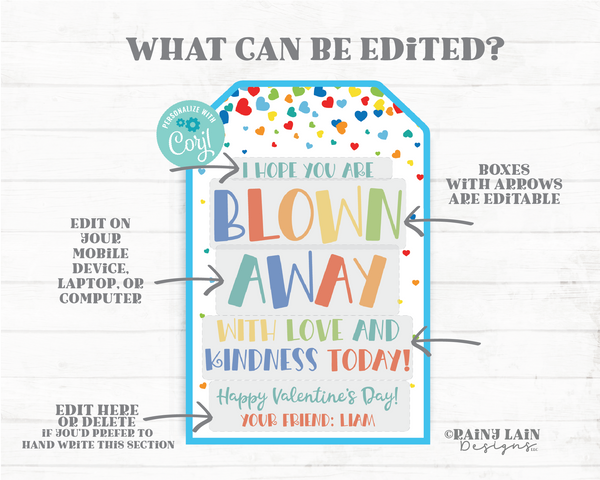 WHAT CAN BE EDITED?
PERSONALIZE WITH
Corjl
I HOPE YOU ARE
BLOWN
AWAY
WITH LOVE AND
KINDNESS TODAY!
Happy Valentine's Day!
YOUR FRIEND: LIAM
BOXES
WITH ARROWS
ARE EDITABLE
EDIT ON
YOUR
MOBILE
DEVICE,
LAPTOP, OR
COMPUTER
EDIT HERE
OR DELETE
IF YOU'D PREFER TO
HAND WRITE THIS SECTION
©RAINY LAIN
Designs LLC